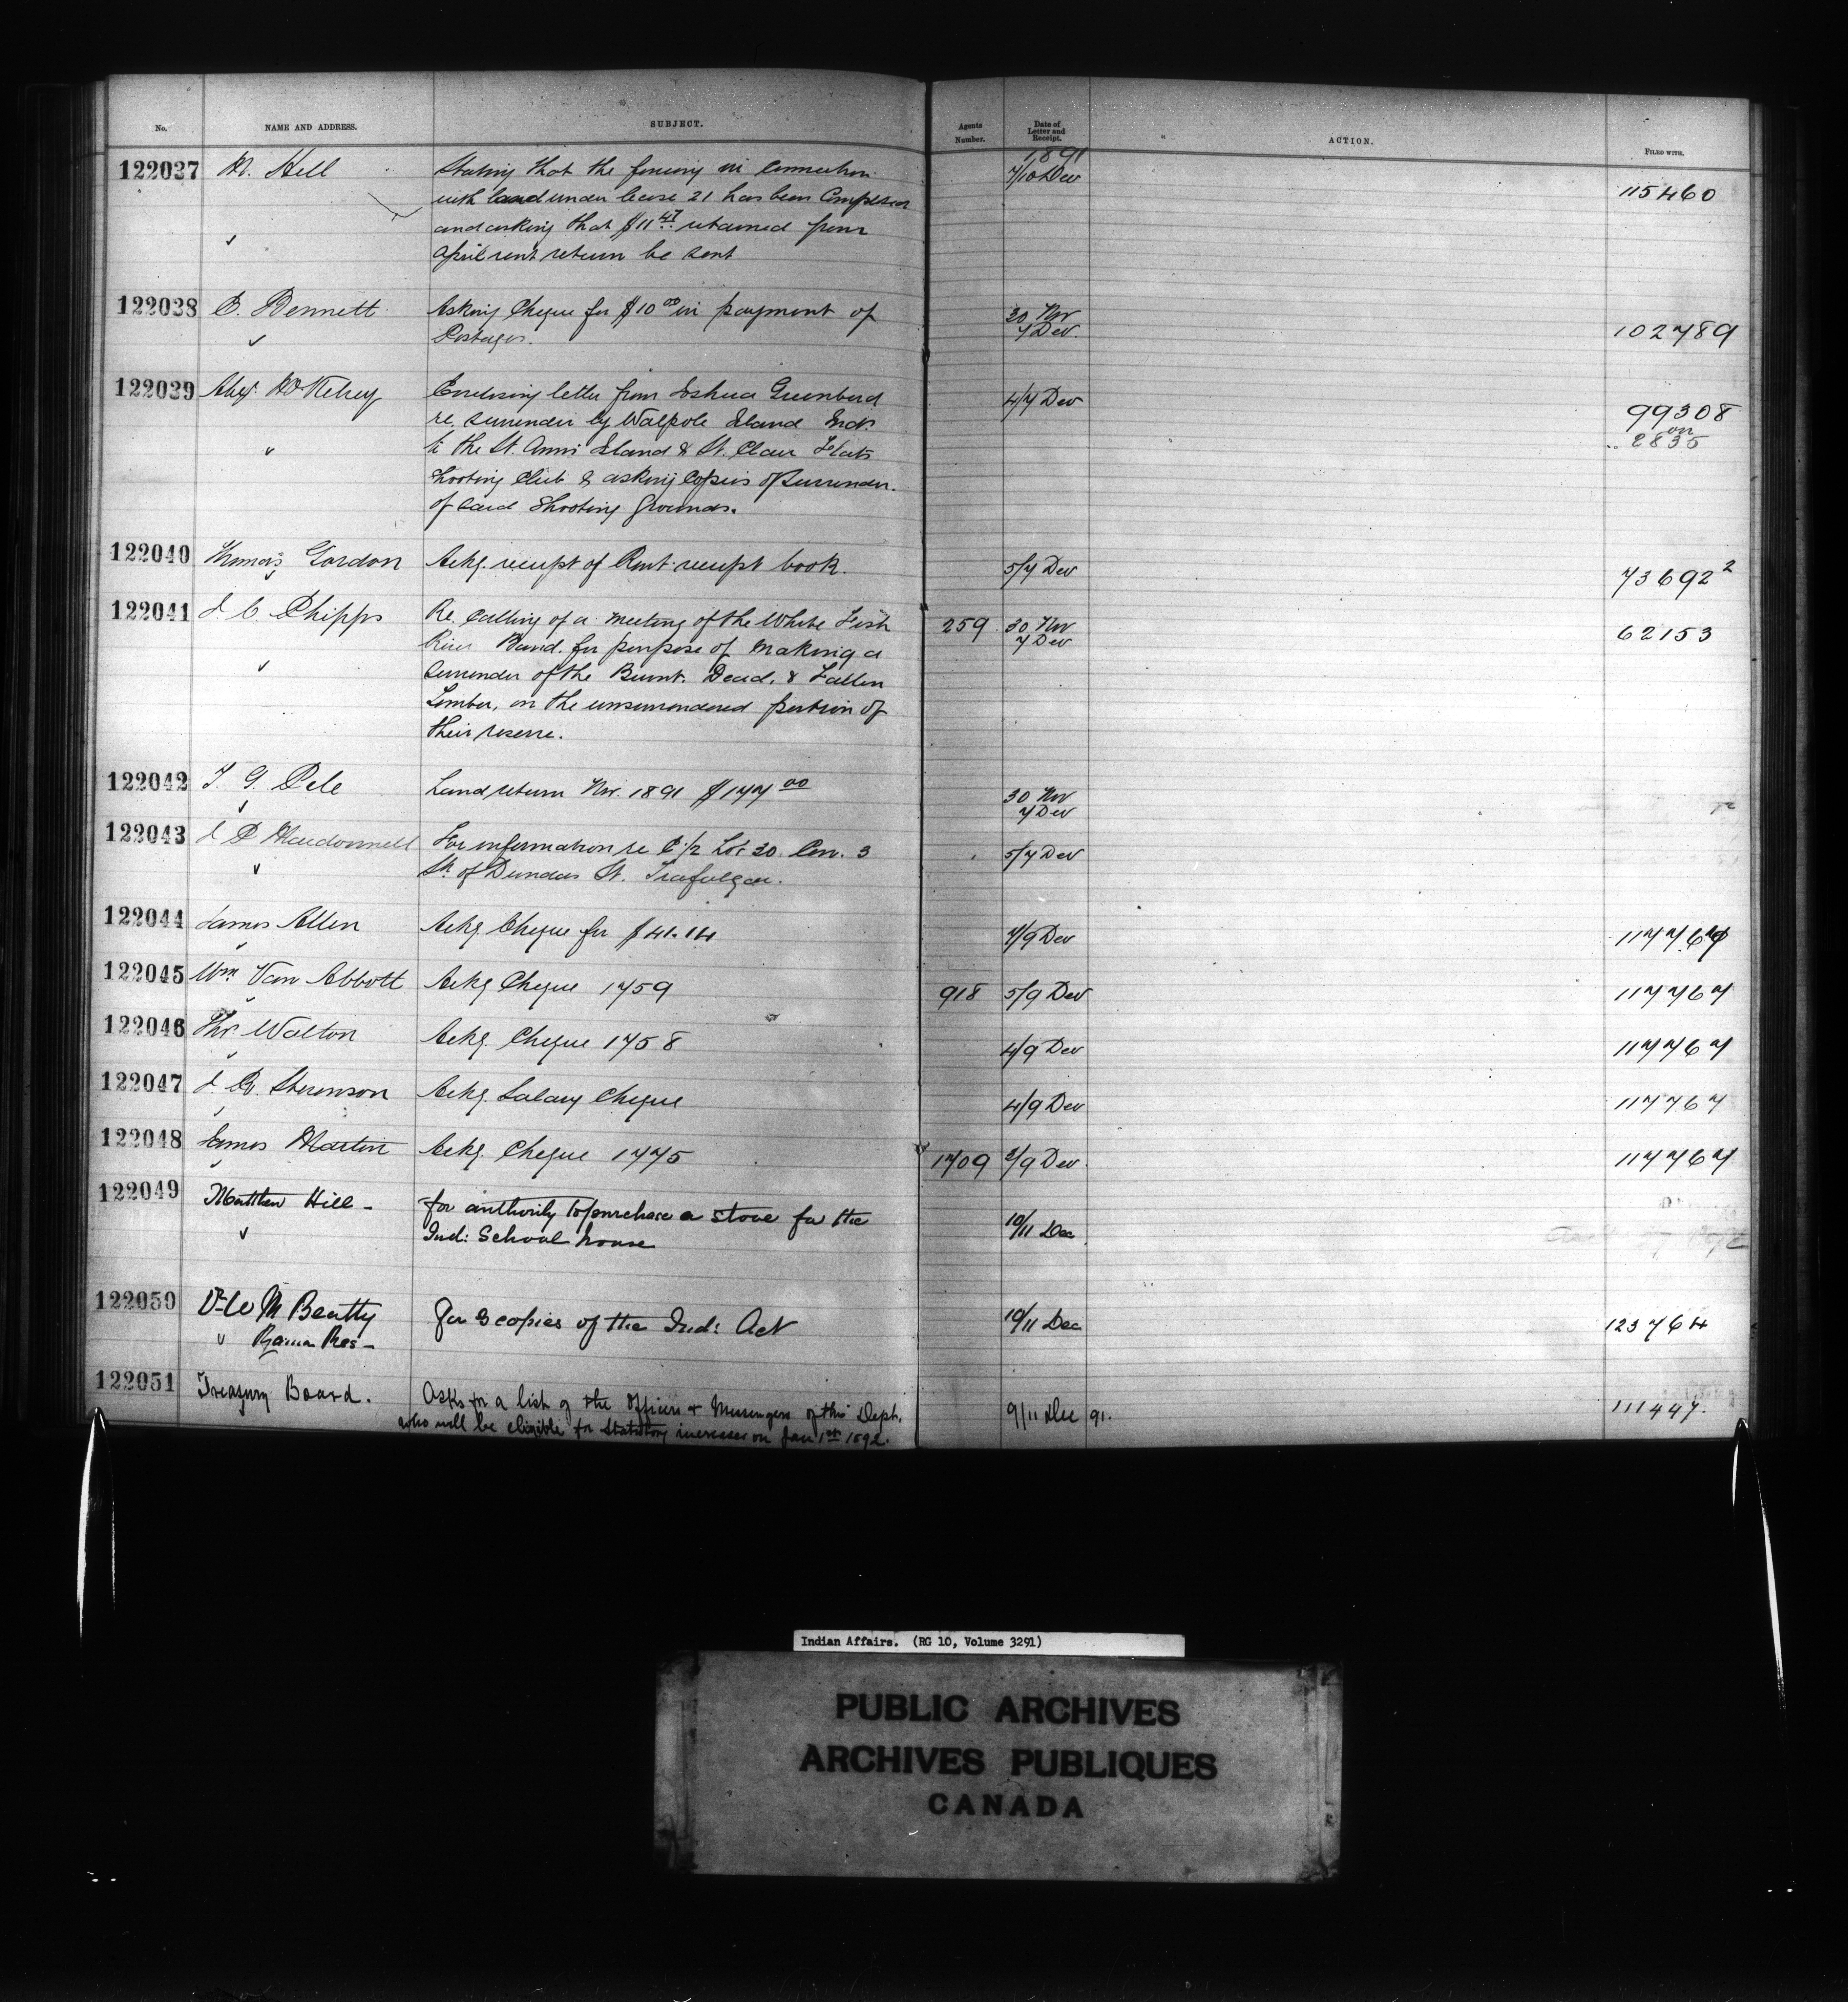 No. NAME AND ADDRESS. SUBJECT. Agents Number. Date of Letter and Receipt. ACTION. FILED WITH.
1891
122037 M. Hill Stating that the fencing in connection 7/10 Dec 115460
with land under lease 21 has been Completed
and asking that $11 47 retained from
April rent return be sent
122038 C. Bennett Asking Cheque for $10 00 in payment of 30 Nov 102789
Postages. 7 Dec.
122039 Alex. McKelvey Enclosing letter from Joshua Greenbird 4/7 Dec 99308
re. surrender by Walpole Island Inds. on 2835
to the St. Anns Island & St. Clair Flats
Shooting Club & asking Copies of Surrender.
of said Shooting Grounds.
122040 Thomas Gordon Ackg. receipt of Rent receipt book. 5/7 Dec 73692 2
122041 J. C. Phipps Re. Calling of a meeting of the White Fish 259 30 Nov 62153
River Band. for purpose of making a 7 Dec
Surrender of the Burnt. Dead. & Fallen
Timber, on the unsurrendered portion of
their reserve.
122042 T. G. Pele Land return Nov. 1891 $177 00 30 Nov
7 Dec
122043 Macdonnell For information re E 1/2 Lot 30. Con. 3 5/7 Dec
Sth of Dundas St. Trafalgar.
122044 James Allen Ackg Cheque for $41.14 7/9 Dec 117767
122045 Wm Van Abbott Ackg Cheque 1759 918 5/9 Dec 117767
122046 Thos. Walton Ackg. Cheque 1758 4/9 Dec 117767
122047 Stevenson Ackg. Salary Cheque 4/9 Dec 117767
122048 James Martin Ackg. Cheque 1775 1709 2/9 Dec. 117767
122049 Matthew Hill - for authority to purchase a stove for the 10/11 Dec
Ind: School house
122050 Dr W M Beatty for 3 copies of the Ind: Act 10/11 Dec 123764
Rama Res -
122051 Treasury Board. Asks for a list of the Officers & Messengers of this Dept. 9/11 Dec 91. 111447.
who will be eligible for Statutory increases on Jan 1st 1892.
Indian Affairs. (RG 10, Volume 3291)
PUBLIC ARCHIVES
ARCHIVES PUBLIQUES
CANADA